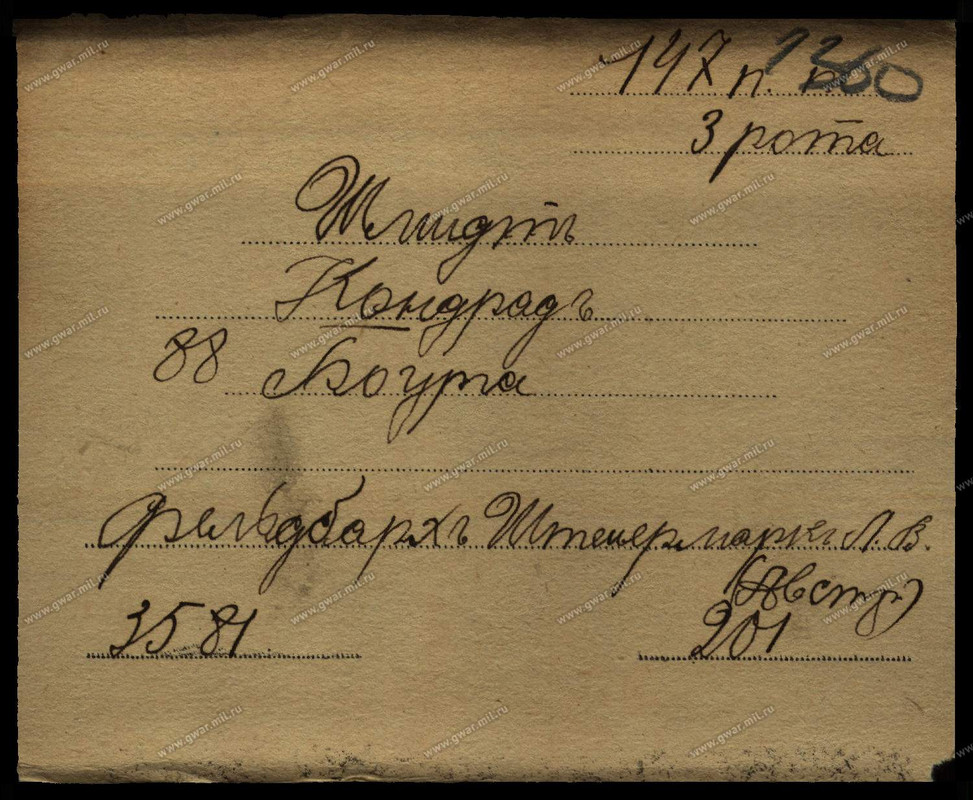 147 п. п. 1260
3 рота
Шмидтъ
Кондрадъ
88 Богута
Фельдбархъ Штейермаркъ Л. В.
(Австр)
3581
201
www.gwar.mil.ru